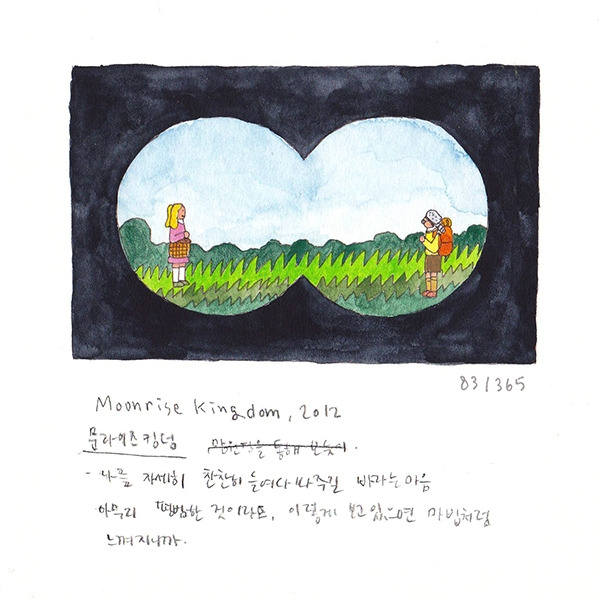 83/365
Moonrise Kingdom, 2012
문라이즈 킹덤 망원경을 통해 보듯이.
- 나를 자세히 찬찬히 들여다 봐주길 바라는 마음
아무리 평범한 것이라도, 이렇게 보고 있으면 마법처럼
느껴지니까.